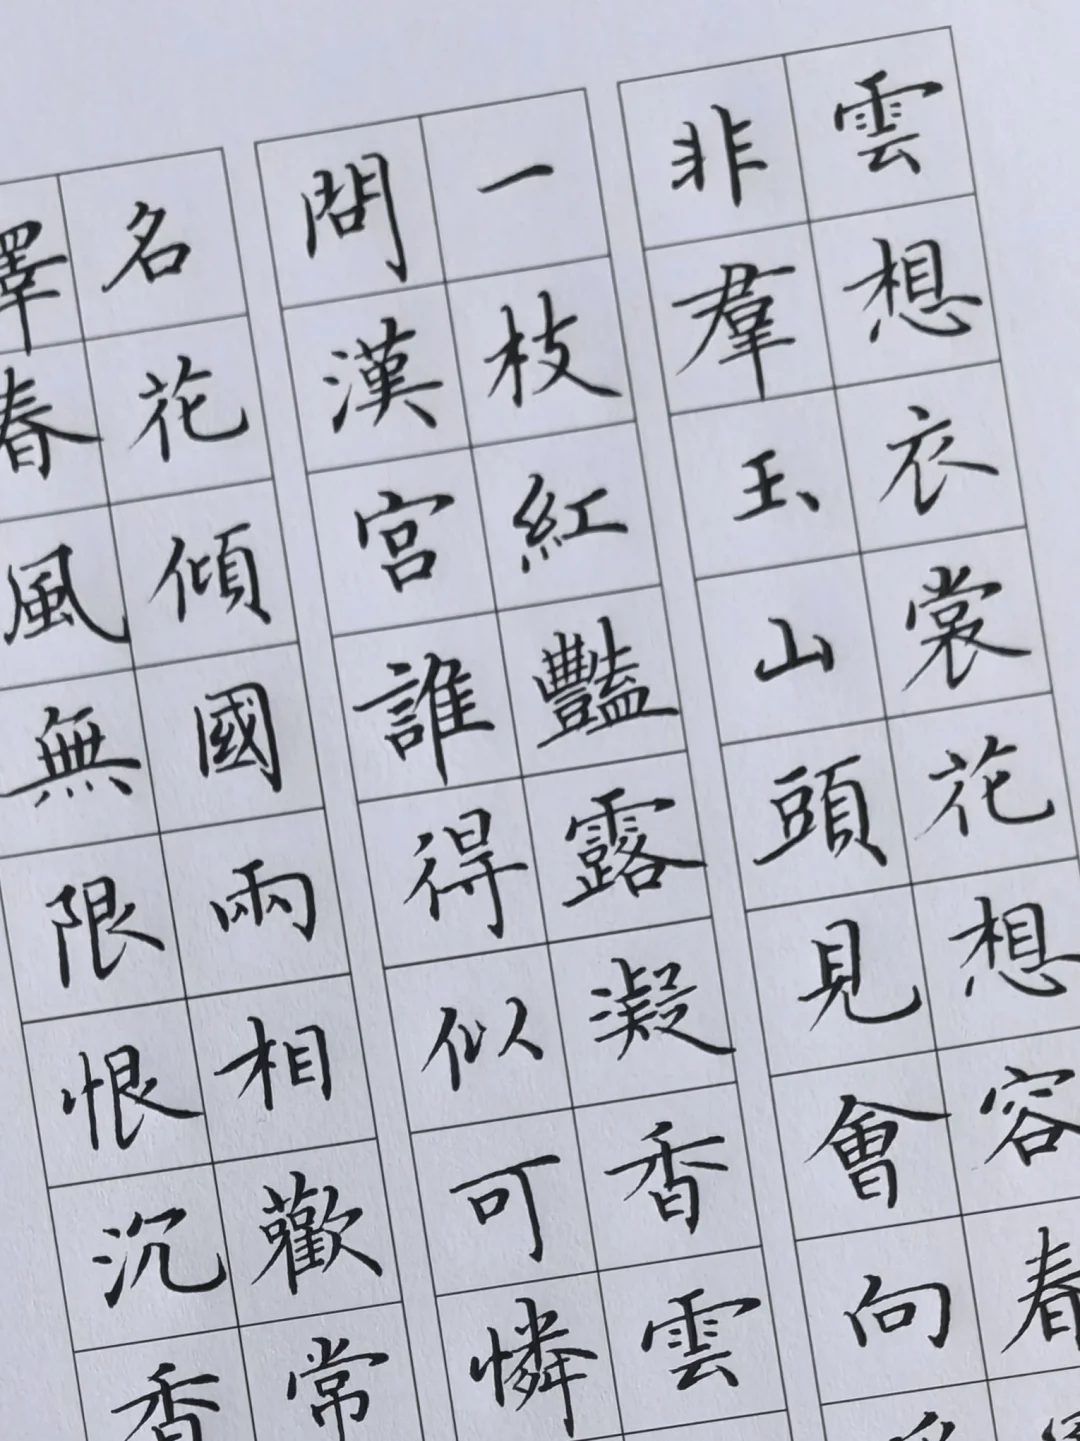 雲想衣裳花想容春
非羣玉山頭見會向
一枝紅豔露凝香雲
問漢宮誰得似可憐
名花傾國兩相歡常
釋春風無限恨沉香